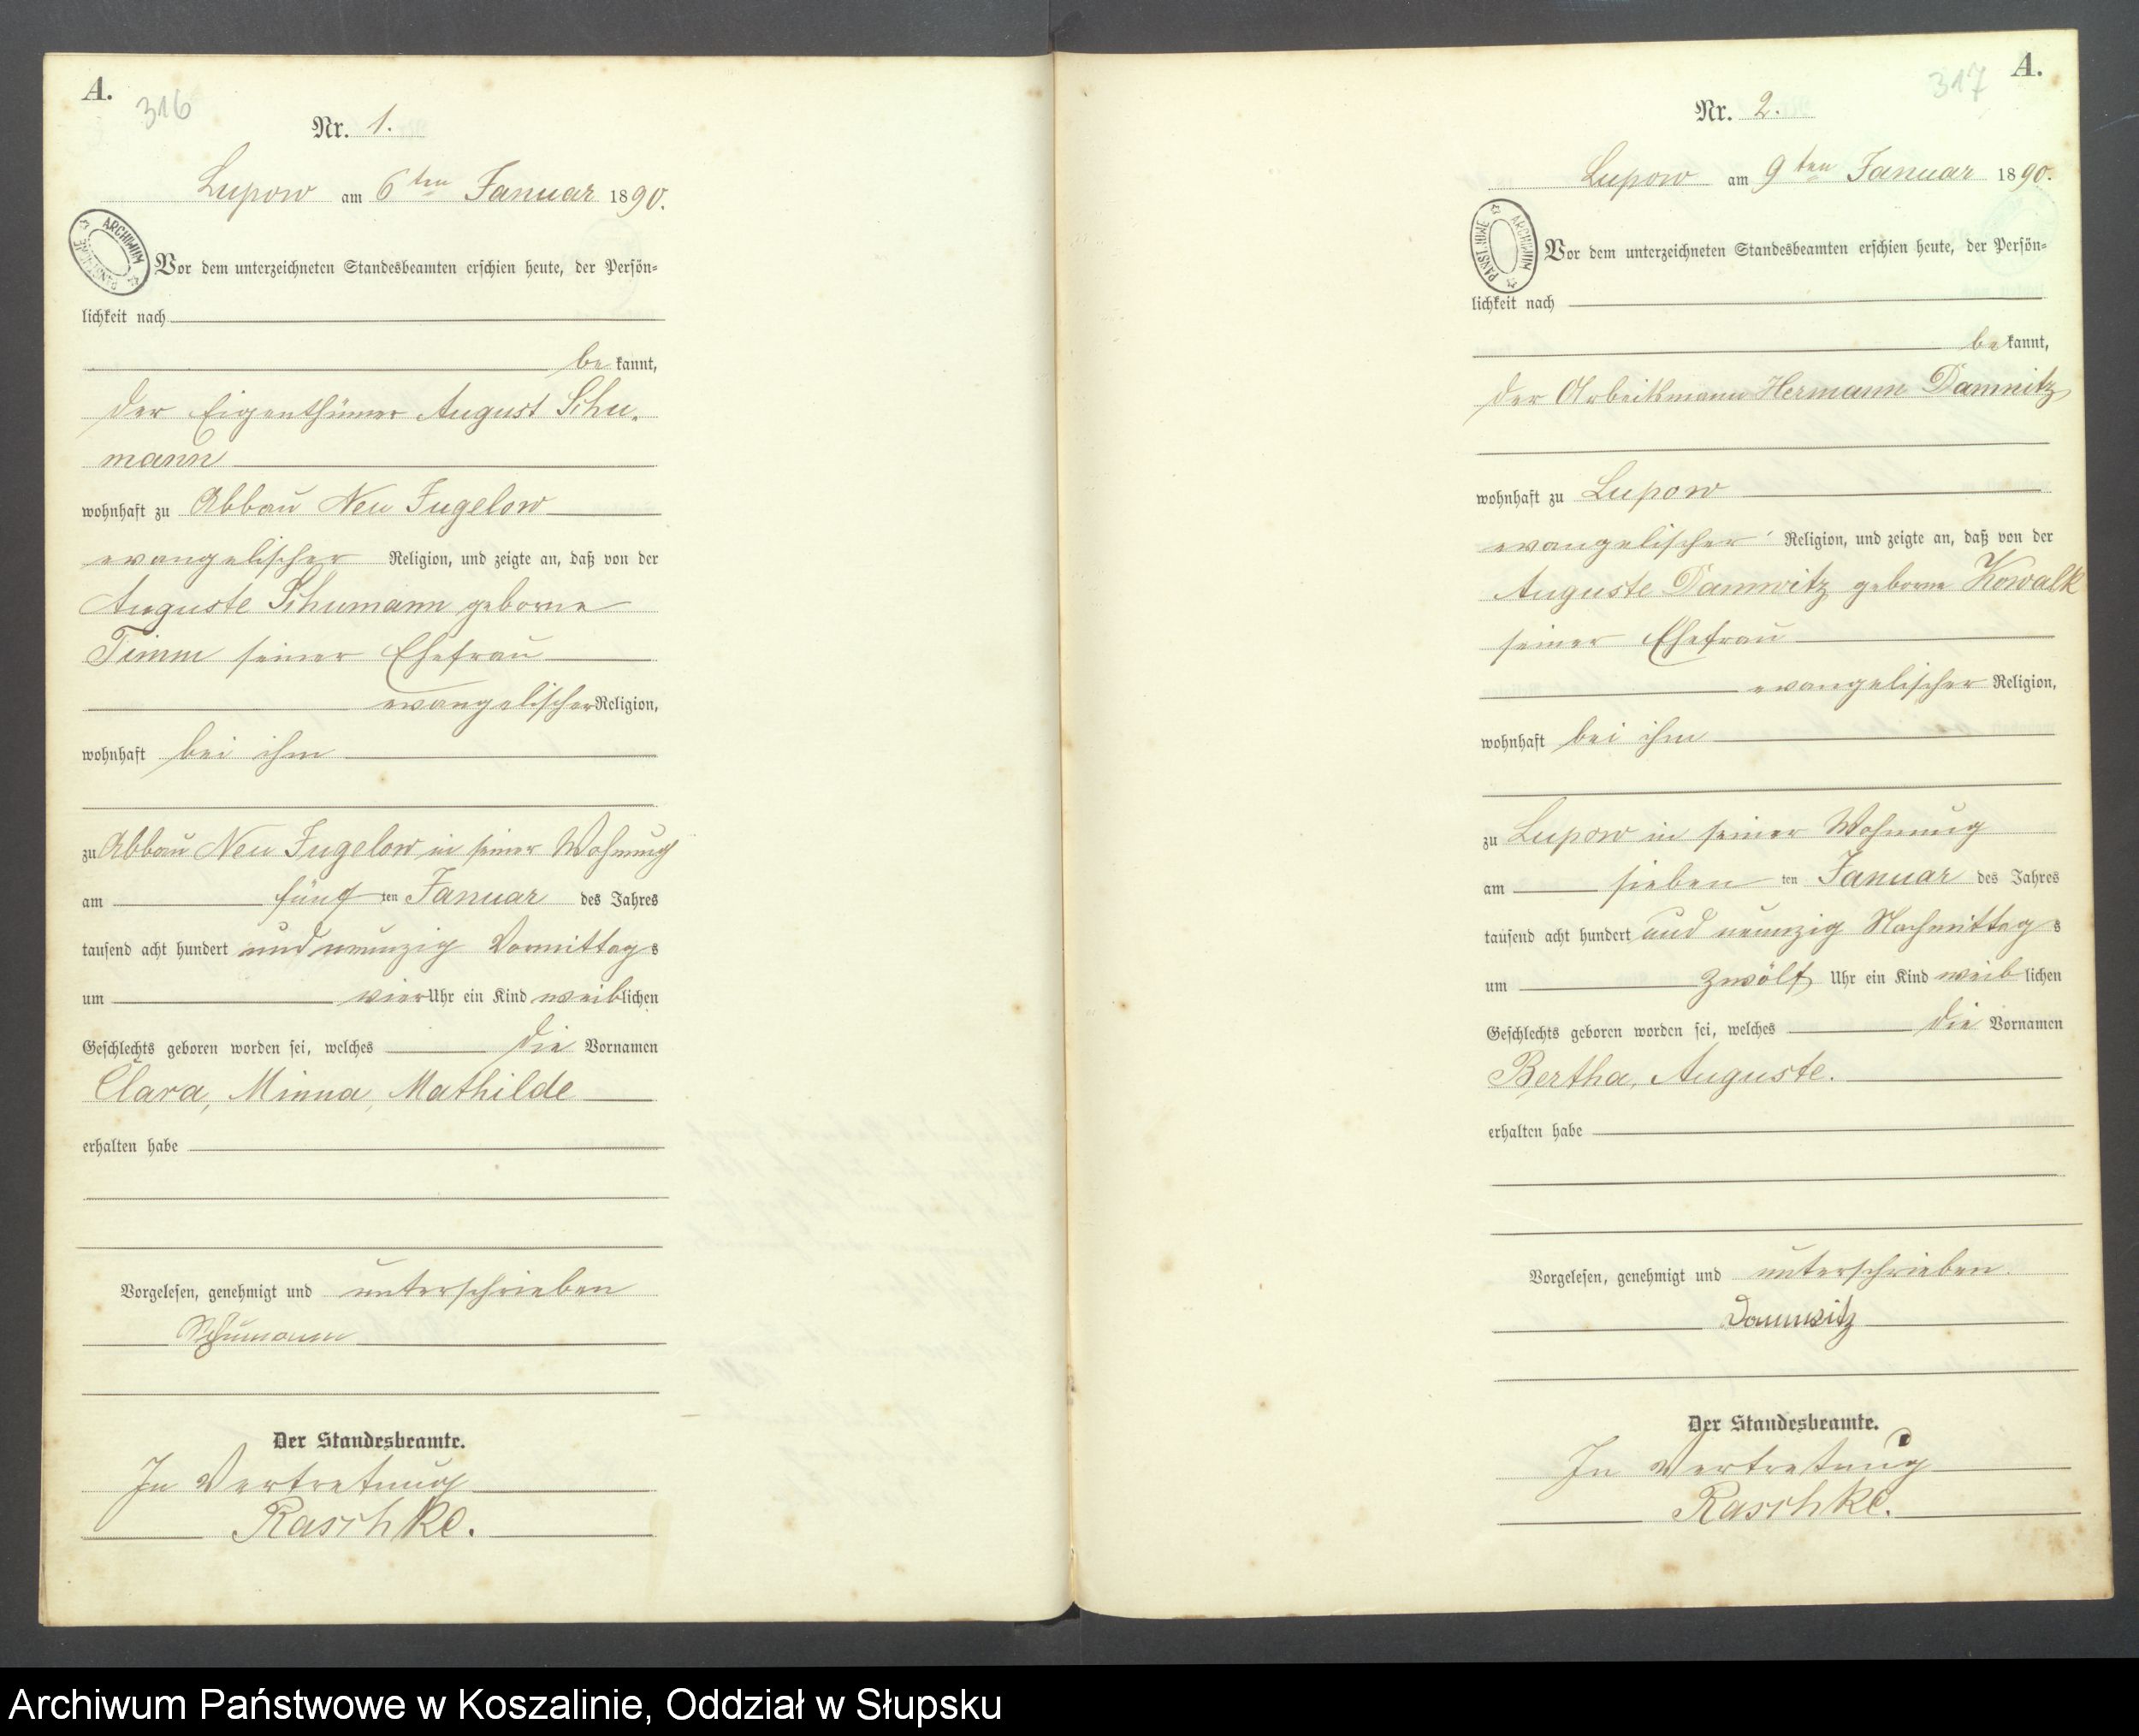 A.
316
Nr. 1.
Lupow am 6ten Januar 1890.
ARCHIWUM PAŃSTWOWE
Vor dem unterzeichneten Standesbeamten erschien heute, der Persön-
lichkeit nach
be kannt,
der Eigenthümer August Schu-
mann
wohnhaft zu Abbau Neu Jugelow
evangelischer Religion, und zeigte an, daß von der
Auguste Schumann geborne
Timm seiner Ehefrau
evangelischer Religion,
wohnhaft bei ihm
zu Abbau Neu Jugelow in seiner Wohnung
am fünf ten Januar des Jahres
tausend acht hundert und neunzig Vormittag s
um vier Uhr ein Kind weiblichen
Geschlechts geboren worden sei, welches die Vornamen
Clara, Minna, Mathilde
erhalten habe
Vorgelesen, genehmigt und unterschrieben
Schumann
Der Standesbeamte.
In Vertretung
Raschke.
A.
317
Nr. 2.
Lupow am 9ten Januar 1890.
ARCHIWUM PAŃSTWOWE
Vor dem unterzeichneten Standesbeamten erschien heute, der Persön-
lichkeit nach
be kannt,
der Arbeitsmann Hermann Damnitz
wohnhaft zu Lupow
evangelischer Religion, und zeigte an, daß von der
Auguste Damnitz geborne Kowalk
seiner Ehefrau
evangelischer Religion,
wohnhaft bei ihm
zu Lupow in seiner Wohnung
am sieben ten Januar des Jahres
tausend acht hundert und neunzig Nachmittag s
um zwölf Uhr ein Kind weib lichen
Geschlechts geboren worden sei, welches die Vornamen
Bertha, Auguste.
erhalten habe
Vorgelesen, genehmigt und unterschrieben.
Damnitz
Der Standesbeamte.
In Vertretung
Raschke.
Archiwum Państwowe w Koszalinie, Oddział w Słupsku